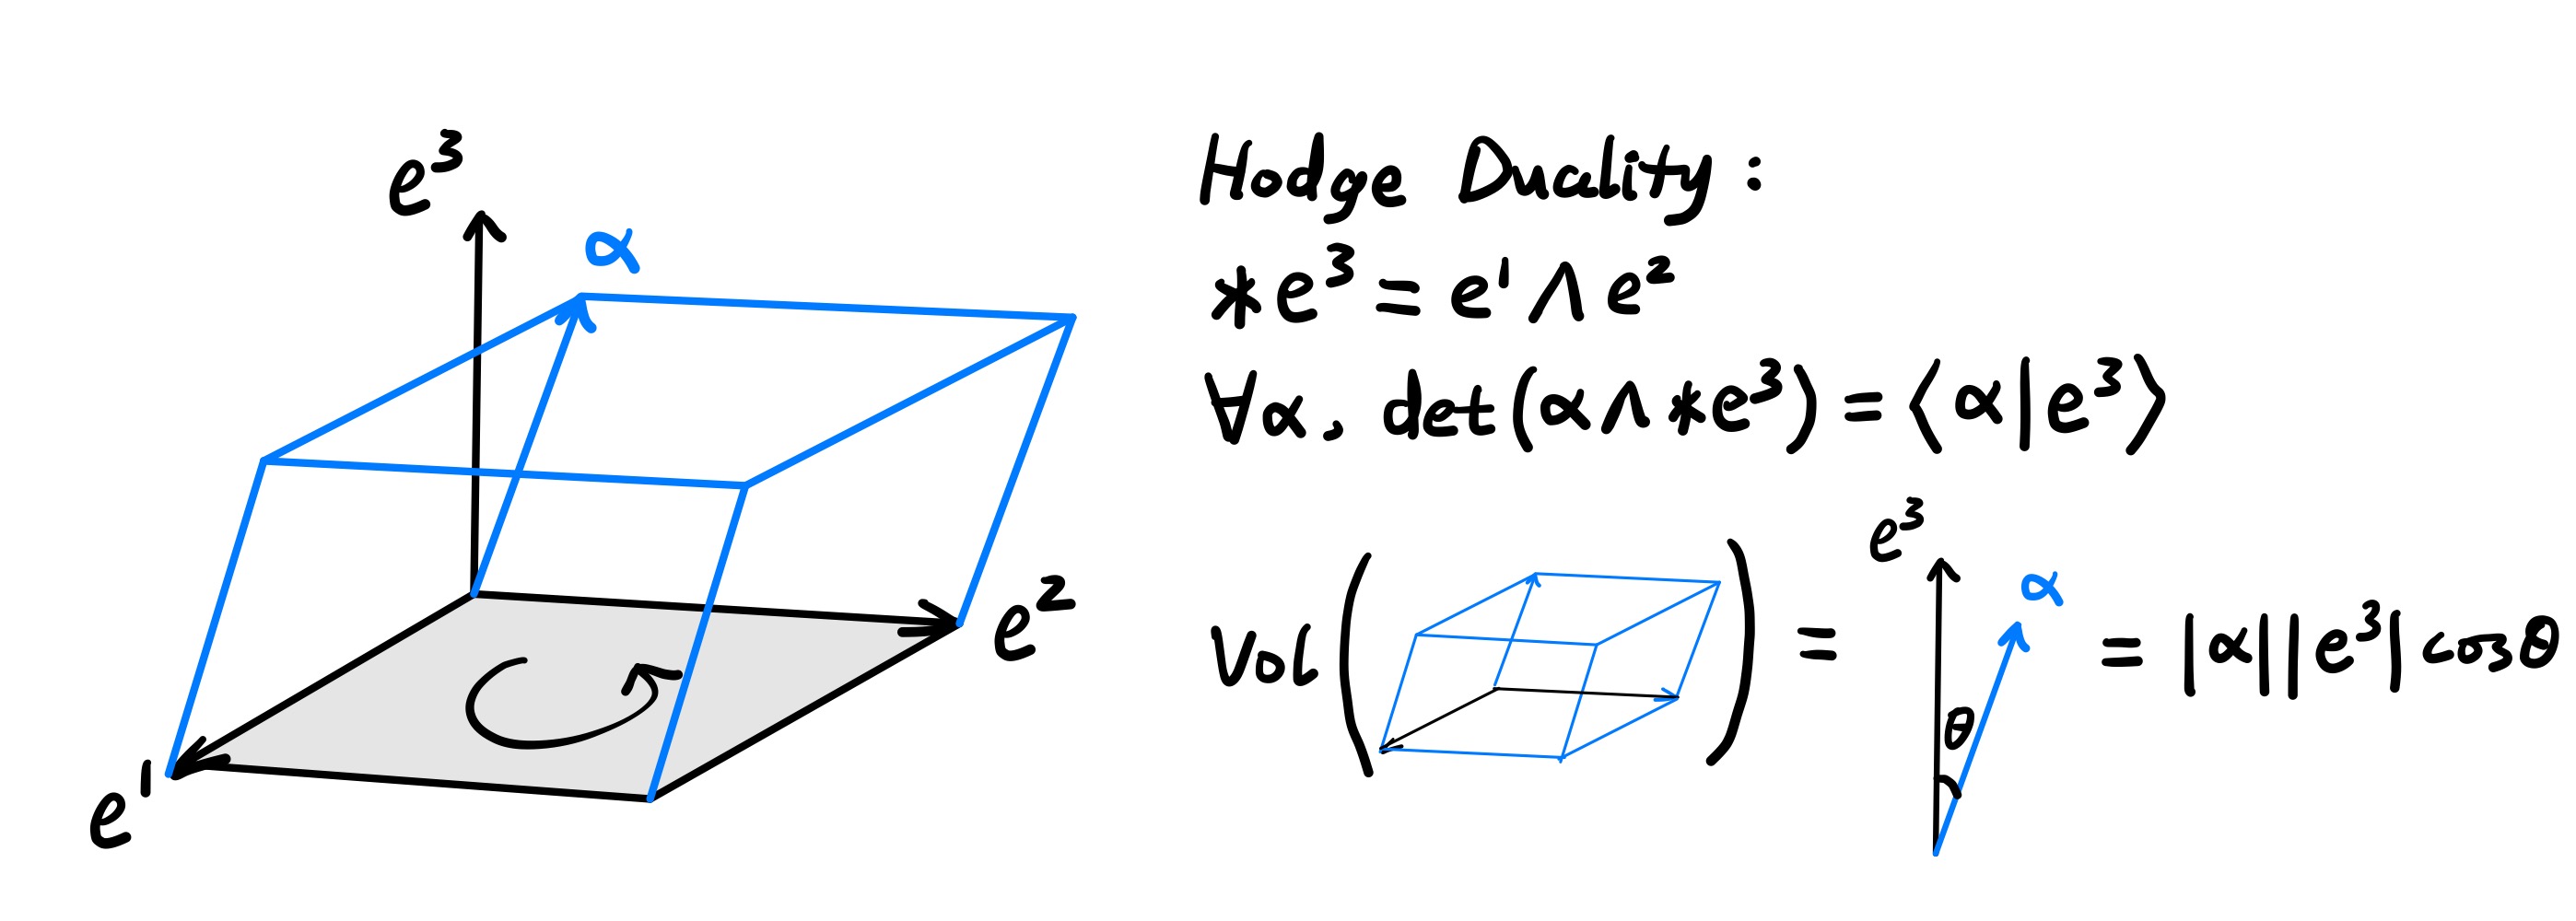 e³
α
e²
e¹
Hodge Duality :
*e³ = e¹ ∧ e²
∀α, det(α ∧ *e³) = ⟨α|e³⟩
Vol ( ) = = |α||e³| cosθ
e³
α
θ